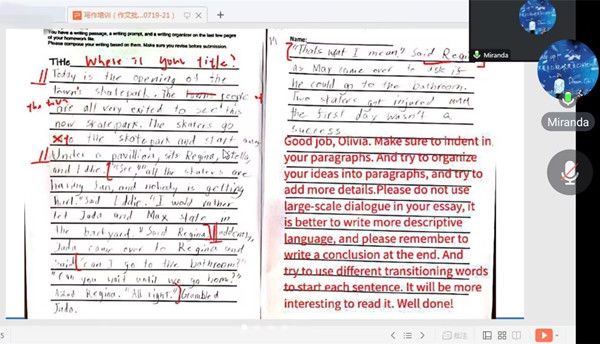 写作培训（作文批...0719-21）
You have a writing passage, a writing prompt, and a writing organizer on the last few pages
of your homework file.
Please compose your writing based on them. Make sure you revise before submission.
Title Where is your title?
Today is the opening of the
town's skatepark. The town people of
the town
are all very exited to see this
now skatepark. The skaters go
to the skatepark and start
Under a pavillion, sits Regina,
and Eddie. "See" all the skaters are
having fun, and nobody is getting
hurt." Said Eddie. "I would rather
let Jada and Max skate in
the backyard." Said Regina. Suddenly,
Jada came over to Regina and
said "can I go to the bathroom?"
"Can you wait until we go home?"
Asked Regina. "All right." Grumbled
Jada.
Name:
"Thats what I mean" Said Regina
as Max came over to ask if
he could go to the bathroom.
Two skaters got injured and
the first day wasn't a
success
Good job, Olivia. Make sure to indent in
your paragraphs. And try to organize
your ideas into paragraphs, and try to
add more details.Please do not use
large-scale dialogue in your essay, it
is better to write more descriptive
language, and please remember to
write a conclusion at the end. And
try to use different transitioning words
to start each sentence. It will be more
interesting to read it. Well done!
Miranda
Miranda
批注